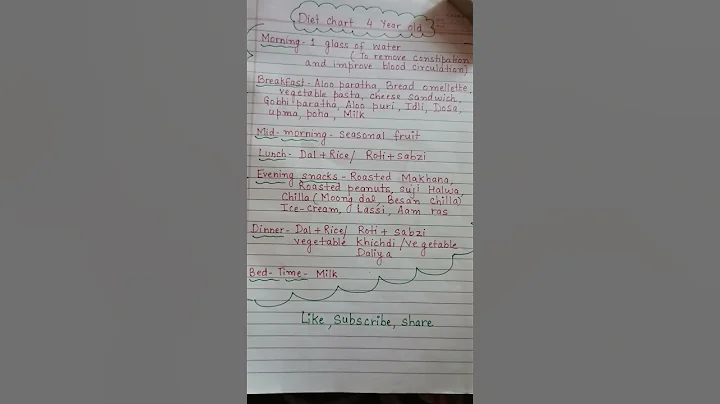 Diet chart 4 Year old
Morning- 1 glass of water
( To remove constipation
and improve blood circulation)
Breakfast- Aloo paratha, Bread omellette,
vegetable pasta, cheese sandwich,
Gobhi paratha, Aloo puri, Idli, Dosa,
upma, poha, Milk
Mid-morning- seasonal fruit
Lunch- Dal+Rice/ Roti+sabzi
Evening snacks- Roasted Makhana,
Roasted peanuts, suji Halwa,
Chilla (Moong dal, Besan chilla)
Ice-cream, Lassi, Aam ras
Dinner- Dal+Rice/ Roti+sabzi
vegetable khichdi/vegetable
Daliya
Bed-Time- Milk
Like, Subscribe, share